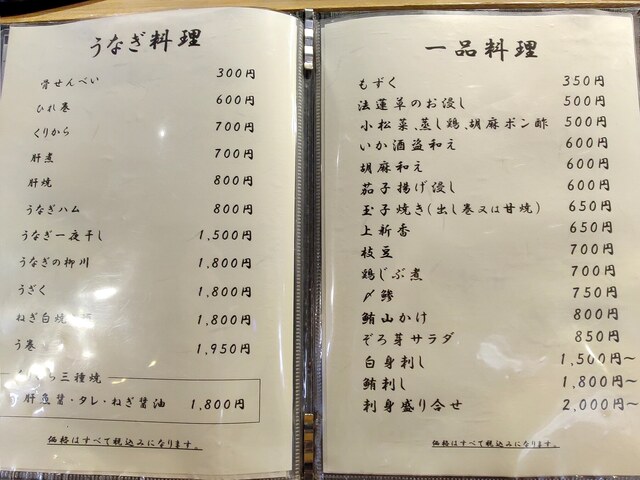 うなぎ料理
骨せんべい 300円
ひれ巻 600円
くりから 700円
肝煮 700円
肝焼 800円
うなぎハム 800円
うなぎ一夜干し 1,500円
うなぎの柳川 1,800円
うざく 1,800円
ねぎ白焼 1,800円
う巻 1,950円
三種焼
肝造醤・タレ・ねぎ醤油 1,800円
価格はすべて税込みになります。
一品料理
もずく 350円
法蓮草のお浸し 500円
小松菜、蒸し鶏、胡麻ポン酢 500円
いか酒盗和え 600円
胡麻和え 600円
茄子揚げ浸し 600円
玉子焼き(出し巻又は甘焼) 650円
上新香 650円
枝豆 700円
鶏じぶ煮 700円
〆鯵 750円
鮪山かけ 800円
ぞろ芽サラダ 850円
白身刺し 1,500円~
鮪刺し 1,800円~
刺身盛り合せ 2,000円~
価格はすべて税込みになります。